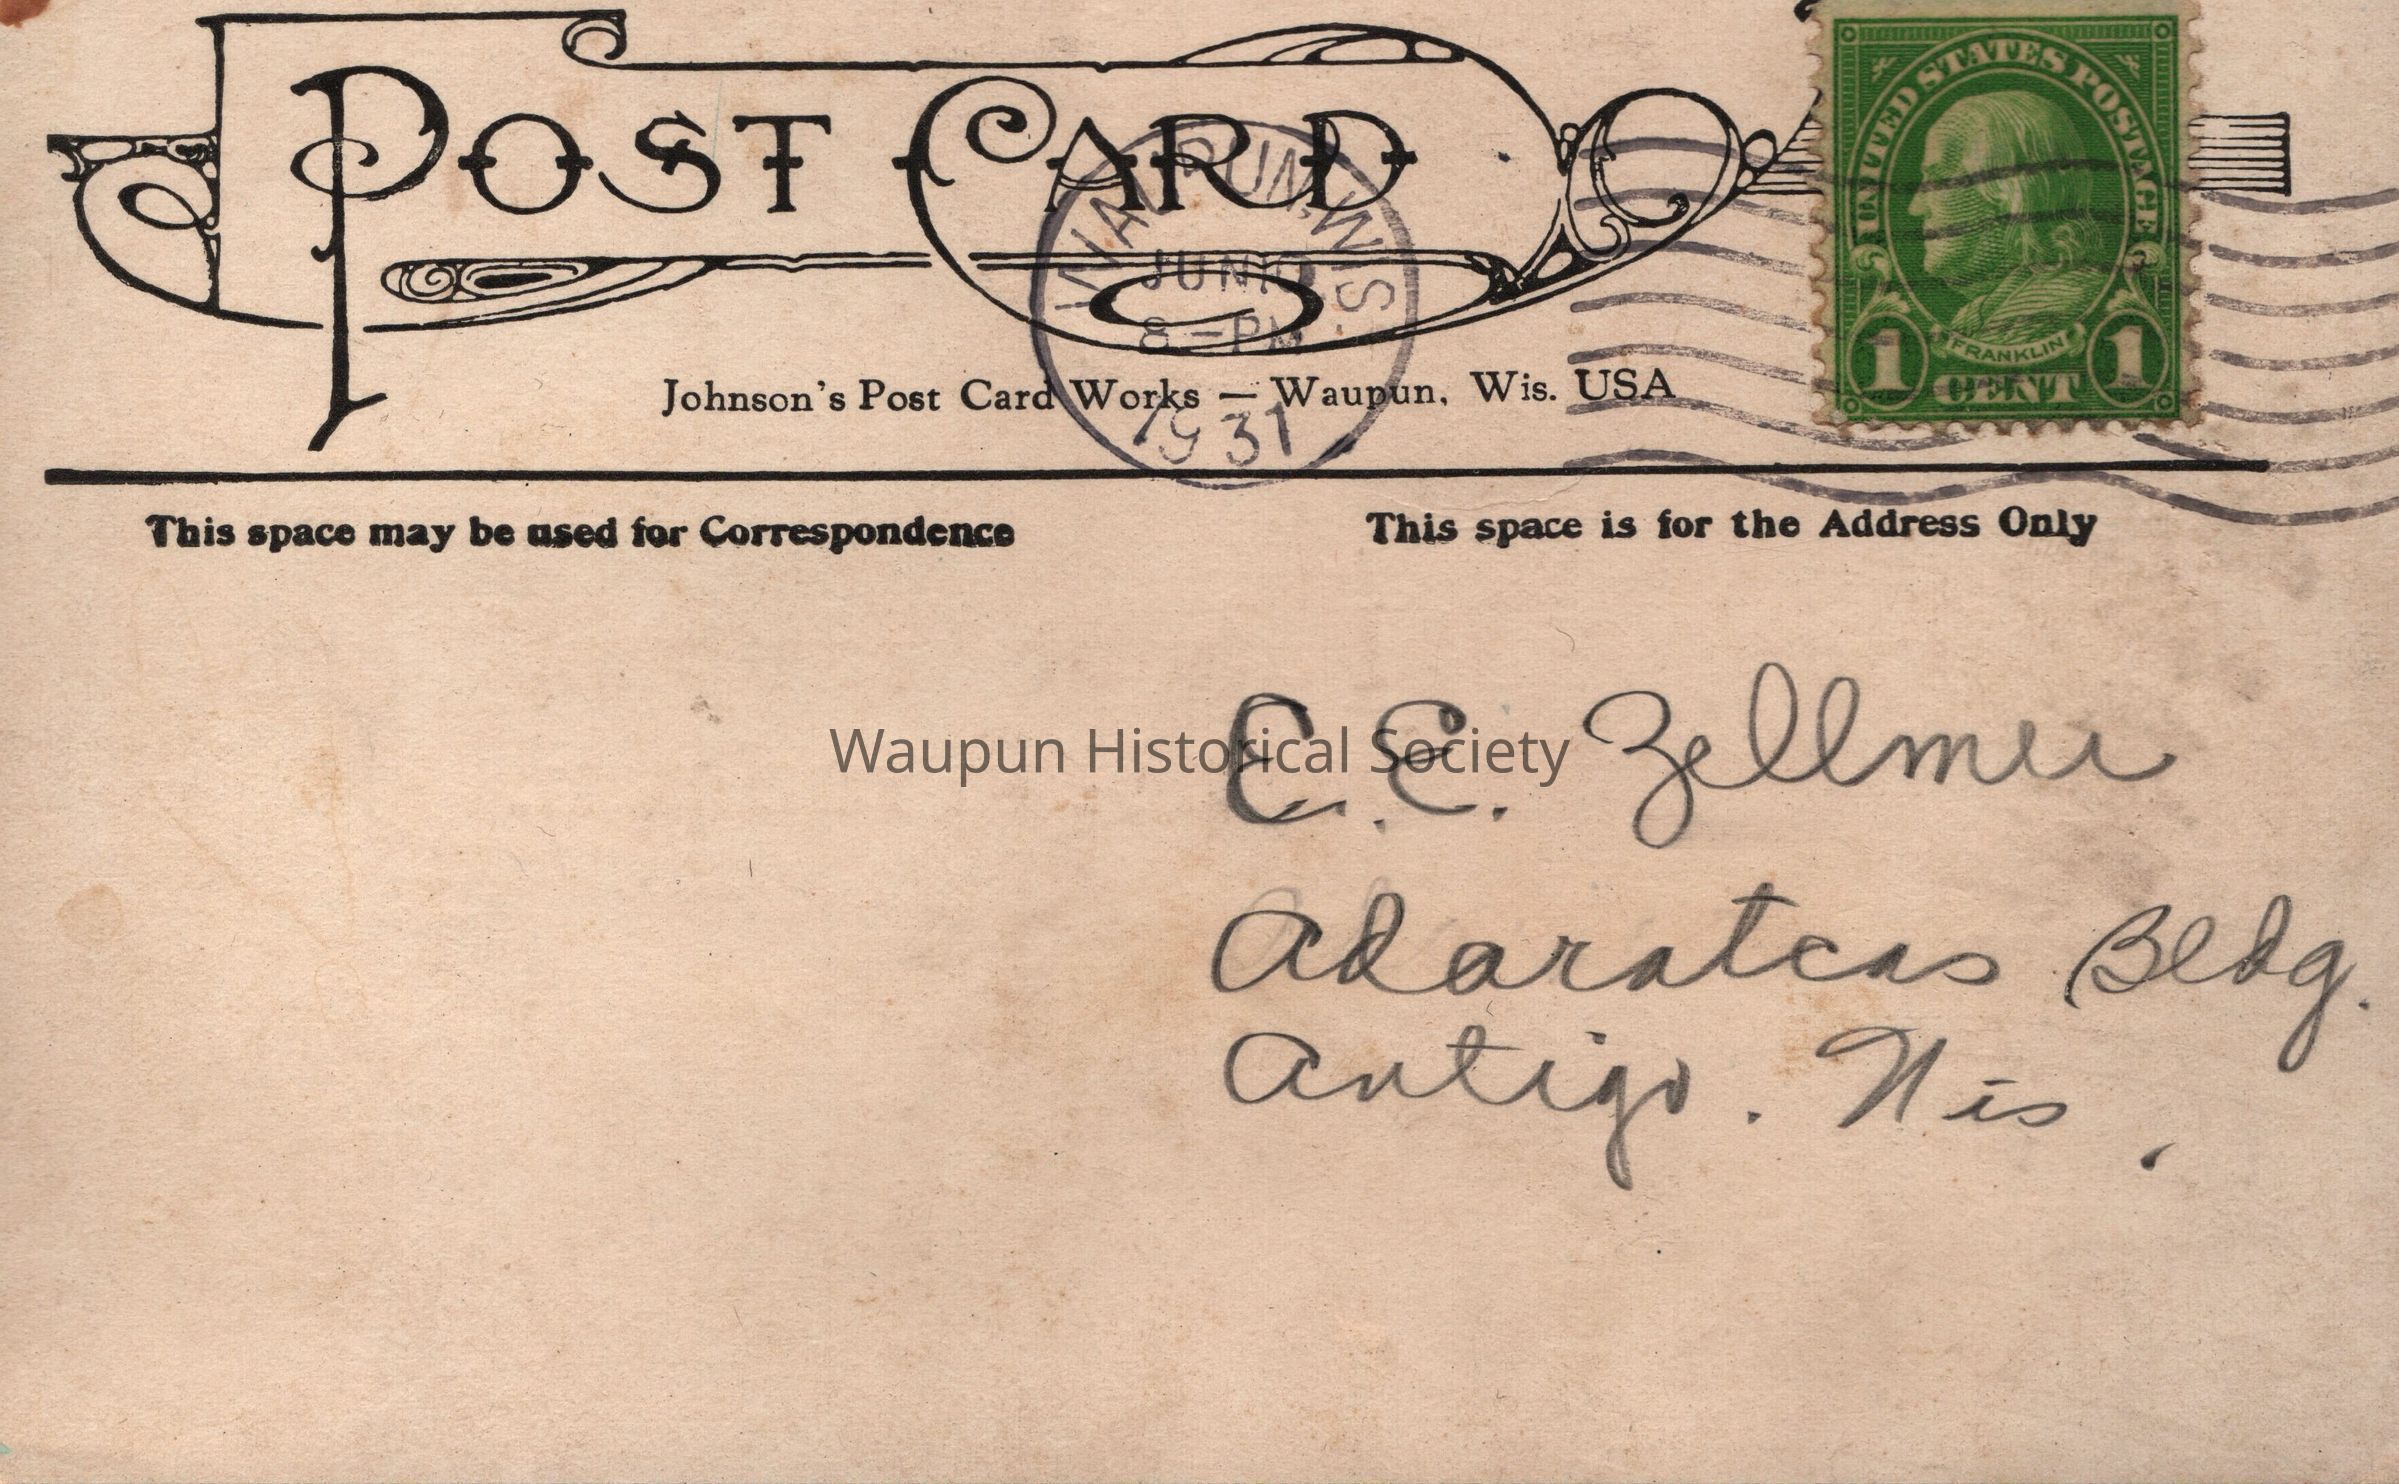 POST CARD
UNITED STATES POSTAGE
FRANKLIN
1 CENT 1
WAUPUN, WIS.
JUN 10
8 - PM
1931
Johnson's Post Card Works — Waupun, Wis. USA
This space may be used for Correspondence
This space is for the Address Only
E. E. Zellmer
Waupun Historical Society
Adaratcas Bldg.
Antigo. Wis.